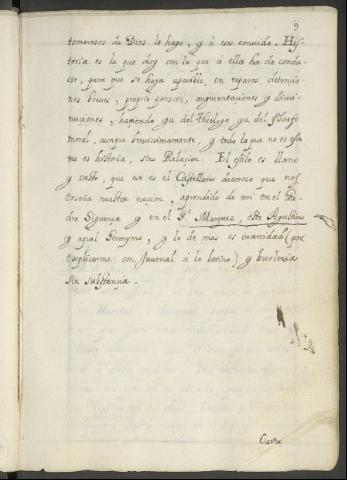 9
temerosos de Dios lo hago, y à esso combido. Hys-
toria es la que doy con lo que à ella ha de condu-
cir, para que se haga apacible, en reparos, detencio-
nes breves, propris passar, augmentaciones y dimi-
nuciones, haciendo ya del Theologo ya del filosofo
moral, aunque brevissimamente, y todo lo que no es esto
no es historia, sino Relacion. El estilo es llano
y casto, que ese es el Castellano decoroso que nos
enseña nuestra nacion, aprendido de mi en el Pa-
dre Siguenza y en el P.e Marquez, este Agustino
y aquel Geronymo, y lo de mas es inanidad (por
explicarme con Juvenal à lo latino) y burleria
sin substancia.
Carta